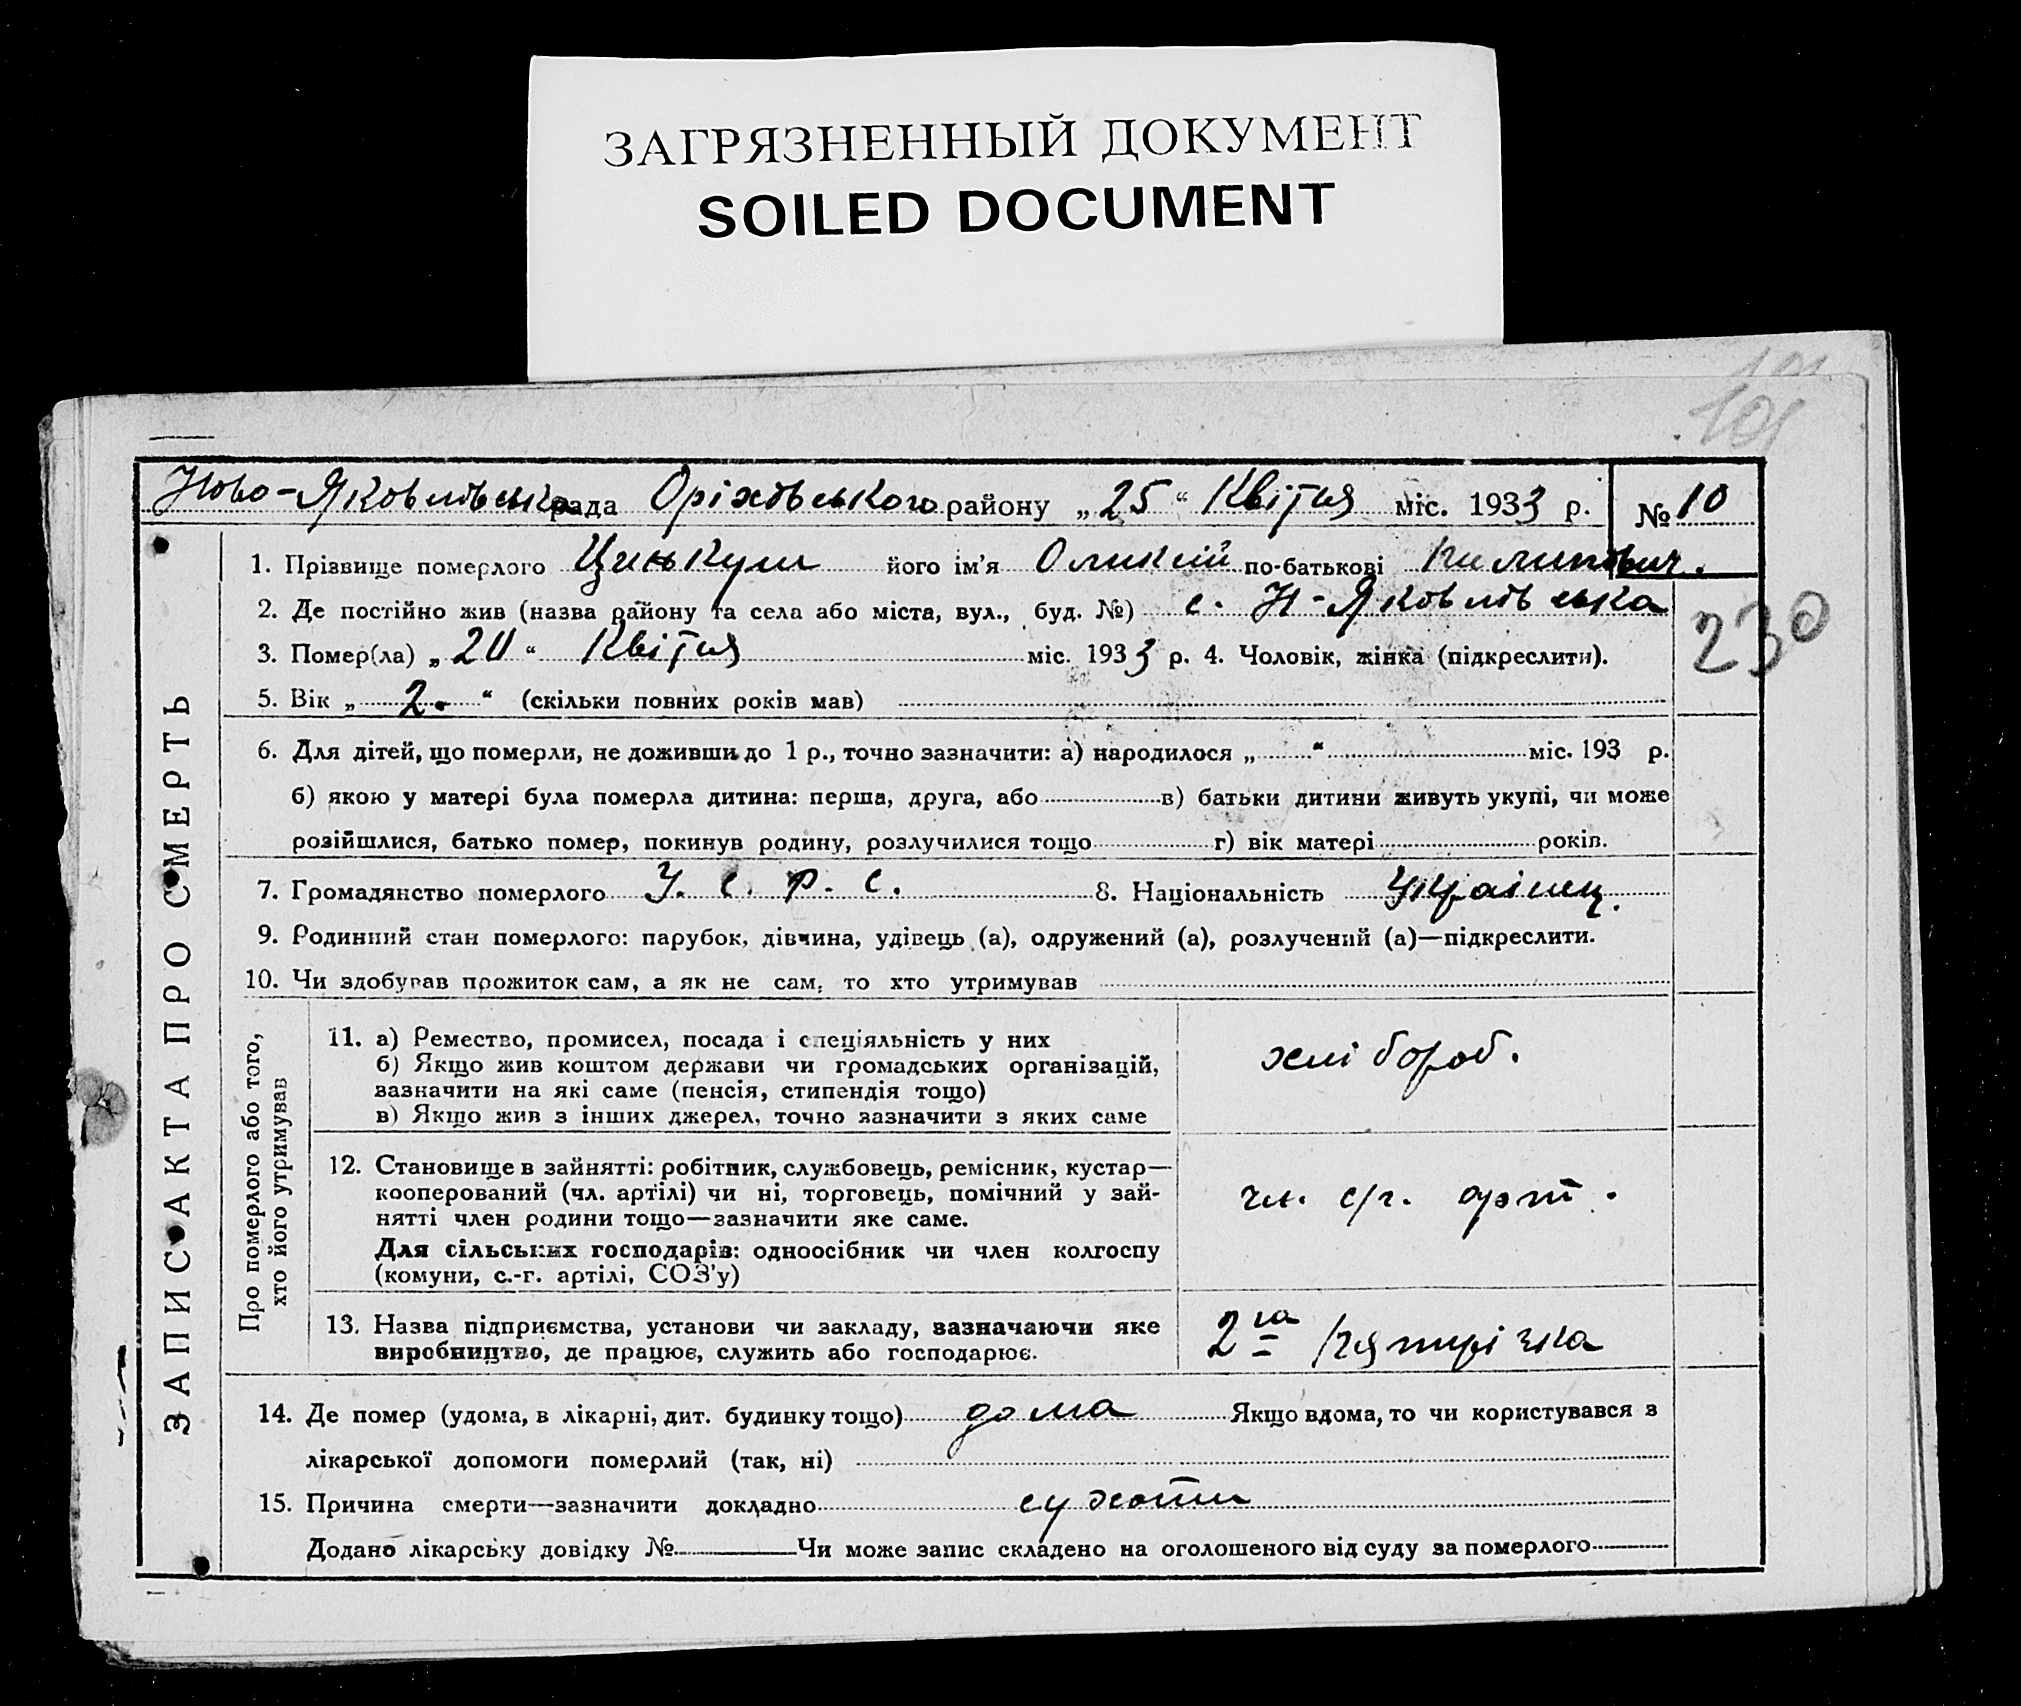 ЗАГРЯЗНЕННЫЙ ДОКУМЕНТ
SOILED DOCUMENT
101
Ново-Яковлівська рада Оріхівського району „25“ Квітня міс. 1933 р. № 10
1. Прізвище померлого Цинькуш його ім'я по-батькові Пилипович.
2. Де постійно жив (назва району та села або міста, вул., буд. №) с. Н-Яковлівська
230
3. Помер(ла) „ “ Квітня міс. 1933 р. 4. Чоловік, жінка (підкреслити).
5. Вік „ 2. “ (скільки повних років мав)
6. Для дітей, що померли, не доживши до 1 р., точно зазначити: а) народилося „ “ міс. 193 р.
б) якою у матері була померла дитина: перша, друга, або в) батьки дитини живуть укупі, чи може
розійшлися, батько помер, покинув родину, розлучилися тощо г) вік матері років.
7. Громадянство померлого У. С. Р. С. 8. Національність Українец.
9. Родинний стан померлого: парубок, дівчина, удівець (а), одружений (а), розлучений (а)—підкреслити.
10. Чи здобував прожиток сам, а як не сам, то хто утримував
ЗАПИС АКТА ПРО СМЕРТЬ
Про померлого або того,
хто його утримував
11. а) Ремество, промисел, посада і спеціяльність у них
б) Якщо жив коштом держави чи громадських організацій,
зазначити на які саме (пенсія, стипендія тощо)
в) Якщо жив з інших джерел, точно зазначити з яких саме
хлібороб.
12. Становище в зайнятті: робітник, службовець, ремісник, кустар—
кооперований (чл. артілі) чи ні, торговець, помічний у зай-
нятті член родини тощо—зазначити яке саме.
Для сільських господарів: одноосібник чи член колгоспу
(комуни, с.-г. артілі, СОЗ'у)
чл. с/г. арт.
13. Назва підприємства, установи чи закладу, зазначаючи яке
виробництво, де працює, служить або господарює.
2га Пятирічка
14. Де помер (удома, в лікарні, дит. будинку тощо) дома Якщо вдома, то чи користувався з
лікарської допомоги померлий (так, ні)
15. Причина смерти—зазначити докладно сухоти
Додано лікарську довідку № Чи може запис складено на оголошеного від суду за померлого